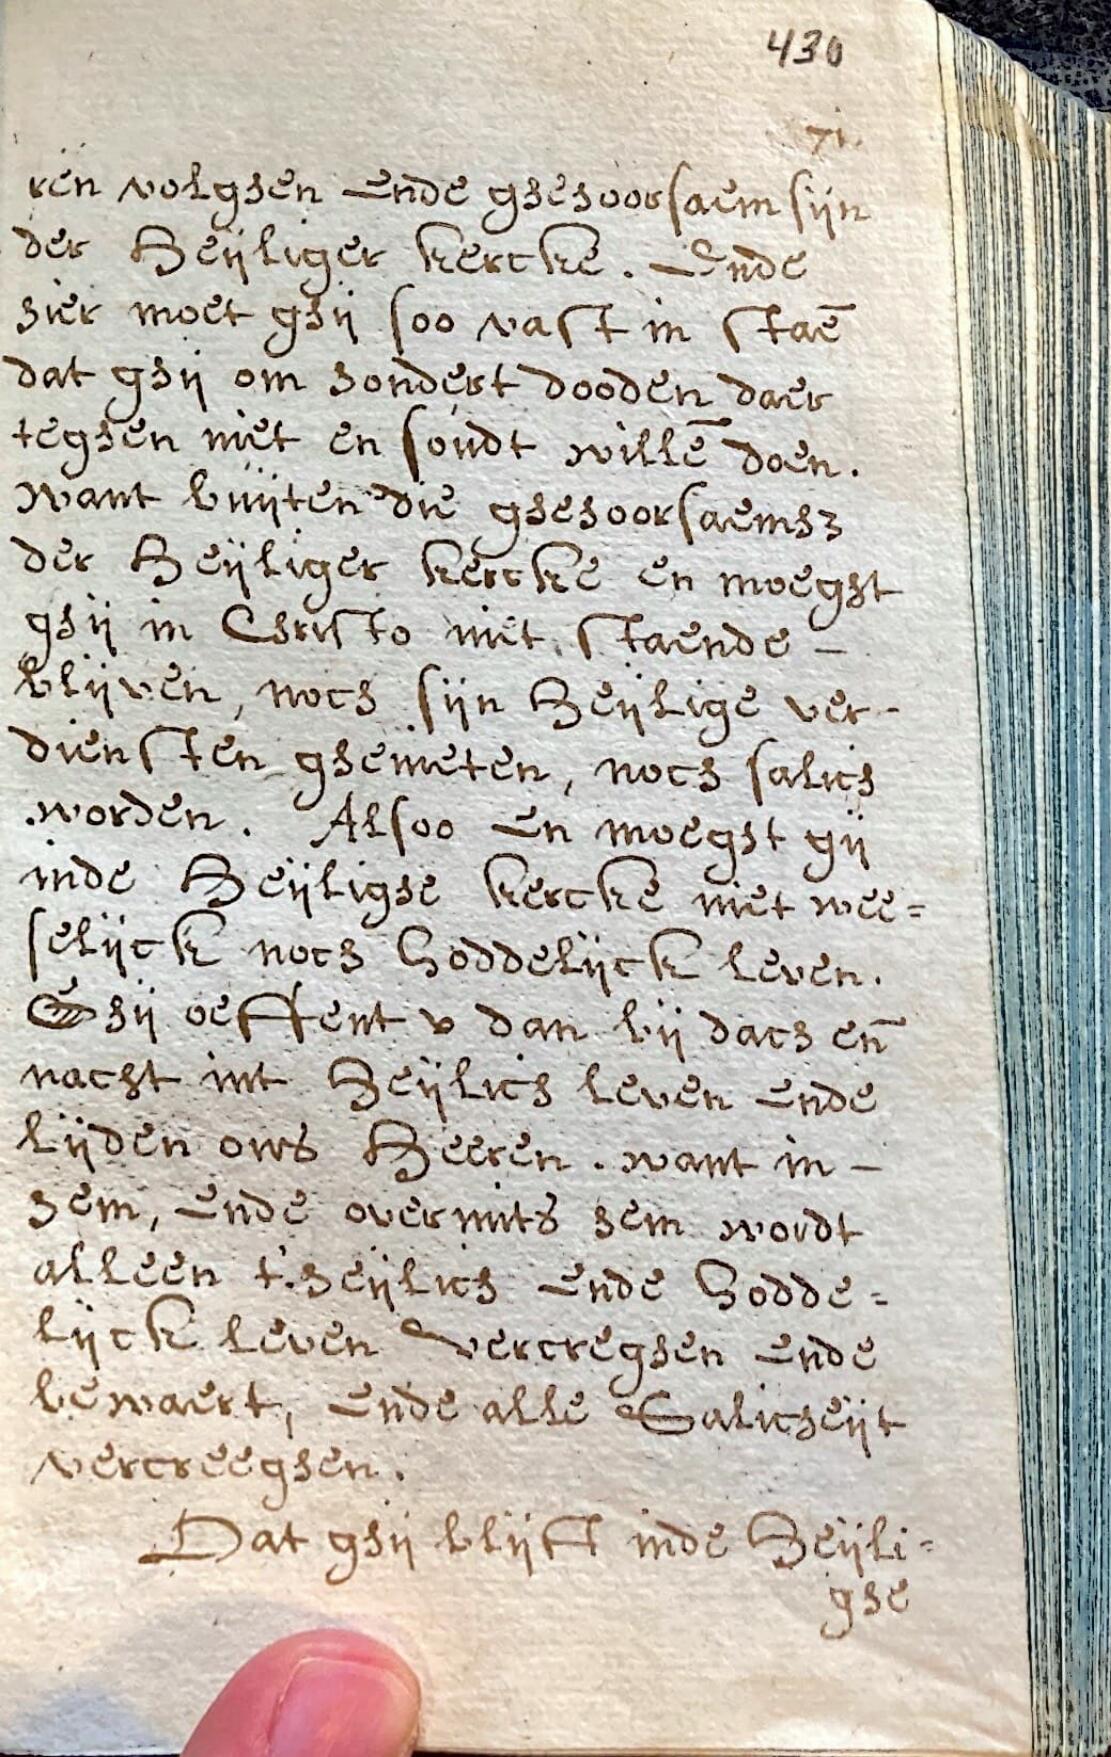 430
71.
ren volghen ende ghehoorsaem sijn
der Heÿliger kercke. Ende
hier moet ghij soo vast in staē
dat ghij om hondert dooden daer
teghen niet en soudt willē doen.
want buijten die ghehoorsaemhz
der Heÿliger kercke en moeght
ghij in Christo niet staende –
blijven, noch sijn Heÿlige ver-
diensten ghenieten, noch salich
worden. Alsoo en moeght gij
inde Heÿlighe kercke niet wee=
selijck noch Goddelijck leven.
Ghij oeffent v dan bij dach en̄
nacht int Heÿlich leven ende
lijden ons Heeren. want in –
hem, ende overmits hem wordt
alleen t'heÿlich ende Godde=
lijck leven vercreghen ende
bewaert, ende alle Salicheÿt
vercreeghen.
Dat ghij blijft inde Heÿli=
ghe